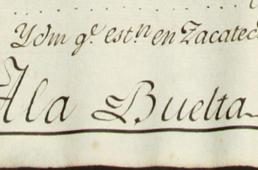 Ydm qe. estn en Zacatec
A la Buelta